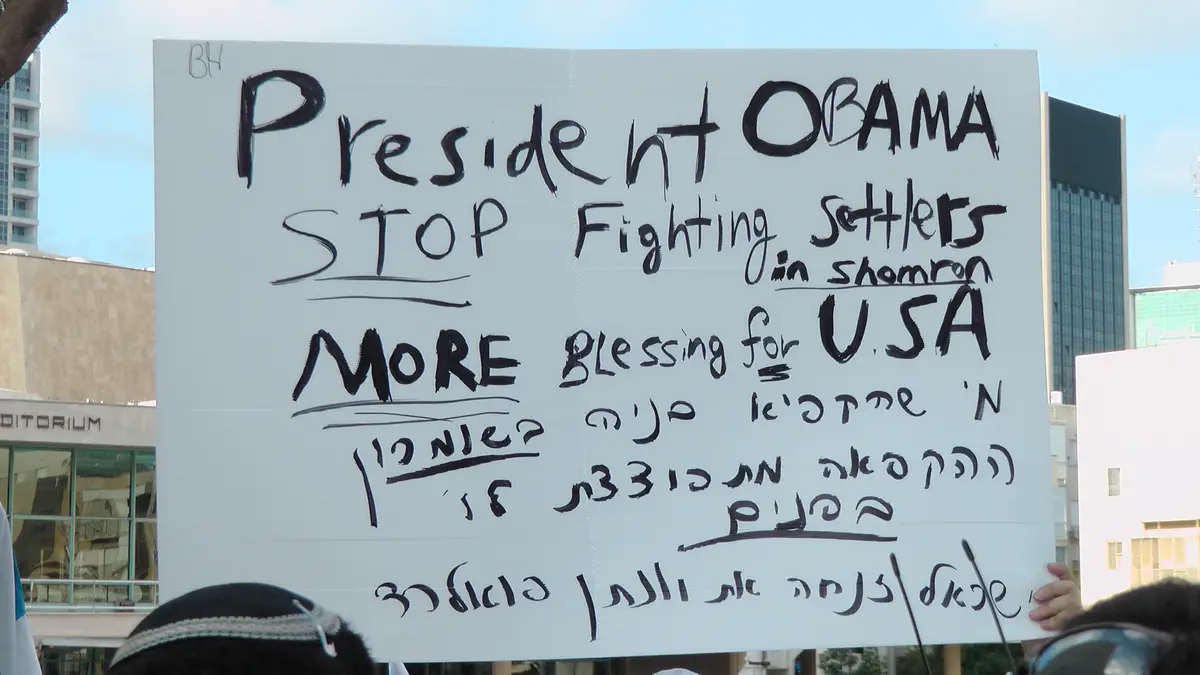 BH
President OBAMA
STOP Fighting Settlers
in shomron
MORE Blessing for U.SA
מי שהקפיא בניה בשומרון
ההקפאה מתפוצצת לו
בפנים
ישראל זנחה את יונתן פואלרד
DITORIUM